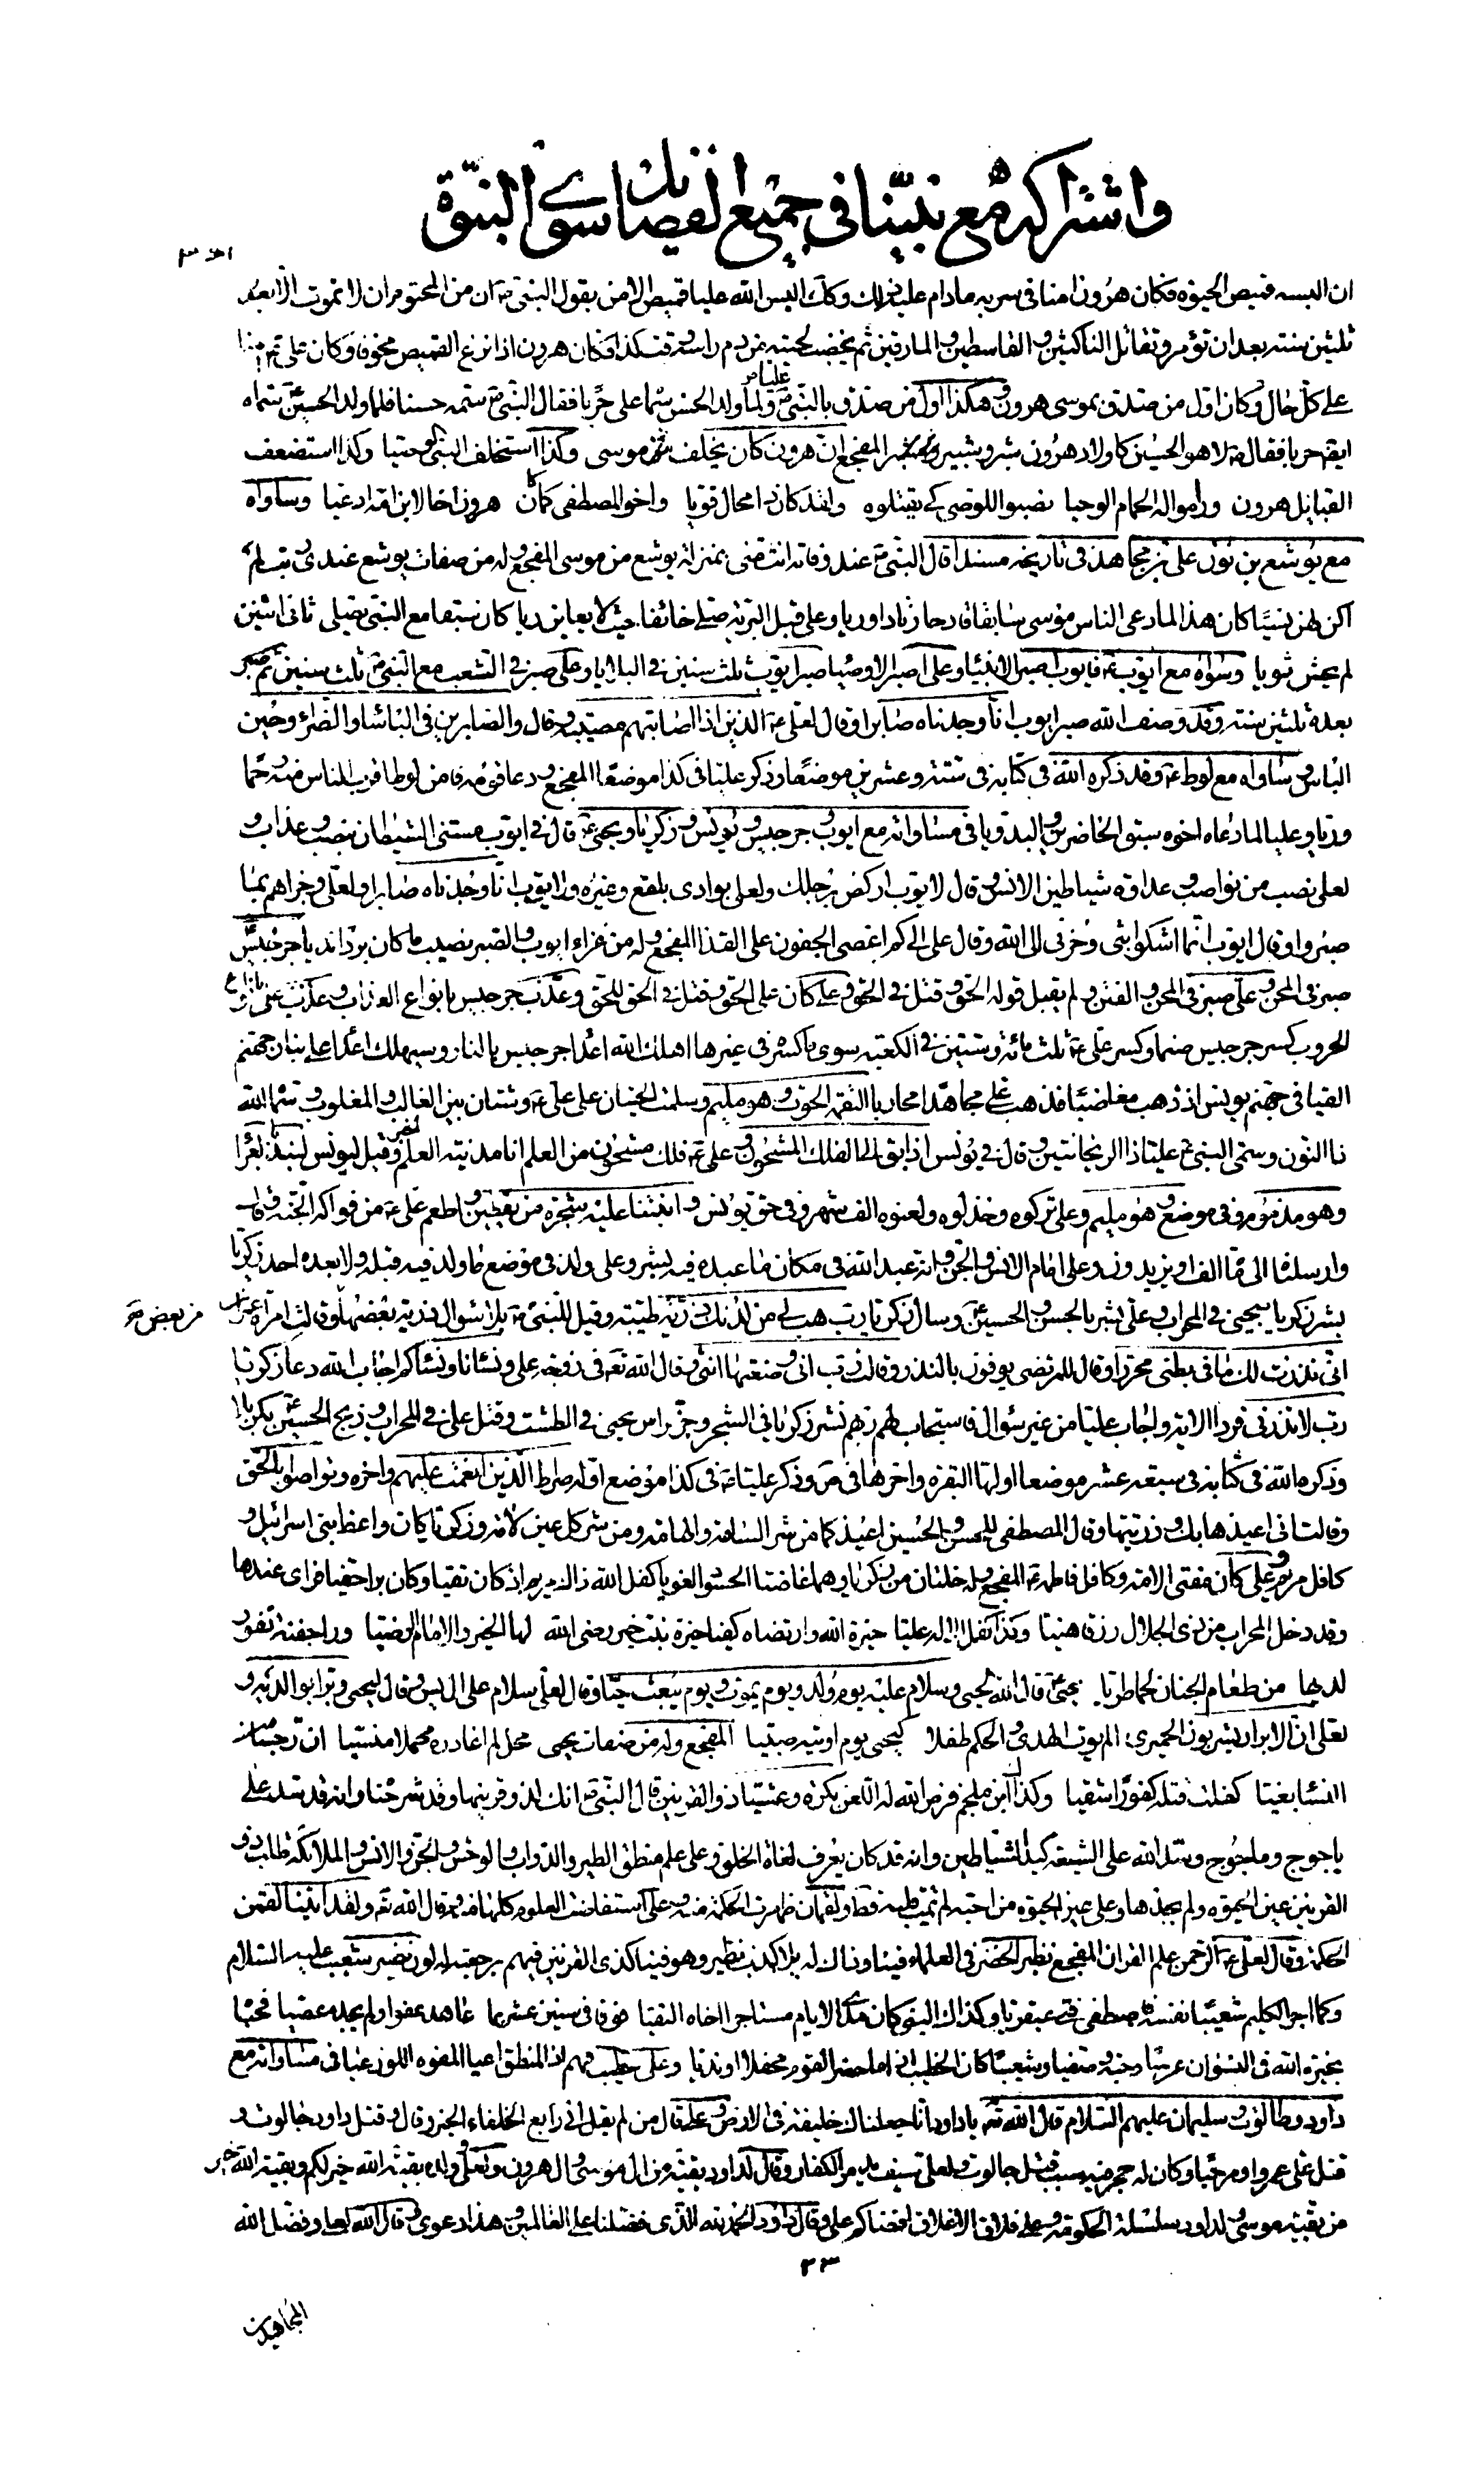 واشتراكه مع نبيّنا في جميع الفضائل سوى النبوّة
ان البسه قميص الحيوة فكان هرون امنا في سربه مادام عليه ذلك وكك البس الله عليا قميص الامن بقول النبي ص ان من المحتوم ان لا تموت الا بعد
ثلثين سنة بعد ان تؤمر وتقاتل الناكثين والقاسطين والمارقين ثم يخضب لحيته من دم راسه وقت كذا فكان هرون اذا نزع القميص مخوفا وكان علي ع امنا
على كل حال وكان اول من صدق بموسى هرون وهكذا اول من صدق بالنبي ص علي ع ولما ولد الحسن سماه علي حربا فقال النبي ص سمه حسنا فلما ولد الحسين سماه
ايضا حربا فقال ص لا هو الحسين كاولاد هرون شبر وشبير ومشبر المفجع ان هرون كان يخلف موسى وكذا استخلف النبي الوصيا وكذا استضعف
القبايل هرون وراموا له الحمام الوحيا نصبوا للوصي كي يقتلوه ولقد كان ذا محال قويا واخو المصطفى كما كان هرون اخا لابن امه لا دعيا وساواه
مع يوشع بن نون علي بن مجاهد في تاريخه مسندا قال النبي ص عند وفاته انت مني بمنزلة يوشع من موسى المفجع وله من صفات يوشع عندي رتب لم
اكن لهن نسيا كان هذا لما دعى الناس موسى سابقا قادحا زنادا وريا وعلي قبل البرية صلى خائفا حيث لا يعاين ريا كان سبقا مع النبي يصلي ثاني اثنين
لم يحش ثويا وساواه مع ايوب ع فايوب اصبر الانبياء وعلي اصبر الاوصيا صبر ايوب ثلث سنين في البلايا وعلي صبر في الشعب مع النبي ص ثلث سنين ثم صبر
بعده ثلثين سنة وقد وصف الله صبر ايوب انا وجدناه صابرا وقال لعلي ع الذين اذا اصابتهم مصيبة وقال والصابرين في الباساء والضراء وحين
الباس وساواه مع لوط ع وقد ذكره الله في كتابه في ستة وعشرين موضعا وذكر عليا في كذا موضعا المفجع ودعا قومه فامن لوط اقرب الناس منه رحما
وريا وعلي لما دعاه اخوه سبق الحاضرين والبدويا في مساواته مع ايوب وجرجيس ويونس وزكريا ويحيى ع قال في ايوب مسني الشيطان بنصب وعذاب و
لعلي نصب من نواصب وعداوة شياطين الانس وقال لايوب اركض برجلك ولعلي بوادي بلقع وغيره ولايوب انا وجدناه صابرا ولعلي وجزاهم بما
صبروا وقال ايوب انما اشكوا بثي وحزني الى الله وقال علي الى كم اغضي الجفون على القذا المفجع وله من عزاء ايوب والصبر نصيب ما كان برذا نديا جرجيس
صبر في المحن وعلي صبر في المحن والفتن ولم يقبل قوله الحق وقتل في الحق وعلي كان على الحق وقتل في الحق للحق وعذب جرجيس بانواع العذاب وعذب علي بانواع
الحروب كسر جرجيس صنما وكسر علي ع ثلث مائة وستين في الكعبة سوى ما كسره في غيرها اهلك الله اعداء جرجيس بالنار وسيهلك اعداء علي بنار جهنم
القيا في جهنم يونس اذ ذهب مغاضبا فذهب علي مجاهدا محاربا التقمه الحوت وهو مليم وسلمت الحيتان على علي ع وشتان بين الغالب والمغلوب وسماه الله
ذا النون وسمى النبي ع عليا ذا الريحانتين وقال في يونس اذ ابق الى الفلك المشحون وعلي ع فلك مشحون من العلم انا مدينة العلم الخبر وقيل ليونس لنبذ بالعرا
وهو مذموم وفي موضع وهو مليم وعلي تركوه وخذلوه ولعنوه الف شهر وفي حق يونس وانبتنا عليه شجرة من يقطين واطعم علي ع من فواكه الجنة وقال
وارسلناه الى مائة الف او يزيدون وعلي امام الانس والجن وانه عبد الله في مكان ما عبده فيه بشر وعلي ولد في موضع ما ولد فيه قبله ولا بعده احد زكريا
بشر زكريا بيحيى في المحراب وعلي بشر بالحسن والحسين ع وسال زكريا رب هب لي من لدنك ذرية طيبة وقيل للنبي ص بلا سؤال ذرية بعضها من بعض وقالت امراة عمران
اني نذرت لك ما في بطني محررا وقال للمرتضى يوفون بالنذر وقالت رب اني وضعتها انثى وقال الله تعه في زوجة علي ونساءنا ونساءكم اجاب الله دعا زكريا
رب لا تذرني فردا الاية واجاب عليا من غير سؤال فاستجاب لهم ربهم نشر زكريا في الشجر وجز راس يحيى في الطشت وقتل علي في المحراب وذبح الحسين ع بكربلا
وذكره الله في كتابه في سبعة عشر موضعا اولها البقرة واخرها في ص وذكر عليا ع في كذا موضع اوله صراط الذين انعمت عليهم واخره وتواصوا بالحق
وقالت اني اعيذها بك وذريتها وقال المصطفى للحسن والحسين اعيذكما من شر السامة والهامة ومن شر كل عين لامة وزكريا كان واعظ بني اسرائيل و
كافل مريم وعلي كان مفتي الامة وكافل فاطمة المفجع وله خلتان من زكريا وهما غاضتا الحسود الغويا كفل الله ذاك مريم اذ كان تقيا وكان برا حفيا فراى عندها
وقد دخل المحراب من ذي الجلال رزقا هنيا وكذا كفل الاله عليا خيرة الله وارتضاه كفيا خيرة بنت خير رضى الله لها الخير والامام الرضيا وراى جفنة تفور
لديها من طعام الجنان لحما طريا يحيى ع قال الله ليحيى وسلام عليه يوم ولد ويوم يموت ويوم يبعث حيا وقال لعلي سلام على ال يس وقال ليحيى وبرا بوالديه و
لعلي ان الابرار يشربون الحميري الم يوت الهدى والحكم طفلا كيحيى يوم اوتيه صبيا المفجع وله من صفات يحيى محل لم اغادره مهملا منسيا ان رجسا من
النساء بغيا كفلت قتله كفورا شقيا وكذا ابن ملجم فرض الله له اللعن بكرة وعشيا ذو القرنين قال النبي ص انك لذو قرنيها وقد شرحنا وانه قد سد على
ياجوج وماجوج وسد الله على الشيعة كيد الشياطين وانه قد كان يعرف لغات الخلق وعلي علم منطق الطير والدواب والوحش والجن والانس والملائكة طلب ذو
القرنين عين الحيوة ولم يجدها وعلي عين الحيوة من احبه لم يمت قلبه قط ولقمان ظهرت الحكمة منه وعلي استفاضت العلوم كلها منه قال الله تعه ولقد اتينا لقمن
الحكمة وقال لعلي ع الرحمن علم القران المفجع نظير الخضر في العلماء فينا وذاك له بلا كذب نظير وهو فينا كذي القرنين فيهم برجعته له لون نضير شعيب عليه السلام
وكما اجر الكليم شعيبا نفسه فاصطفى فتى عبقريا وكذاك النبي كان مدى الايام مستاجرا اخاه التقيا فوفى في سنين عشر بما عاهد عفوا ولم يجده عصيا فحبا
بخيرة الله في النسوان عرسا وحبة وصفيا وشعيب كان الخطيب اذا ما حضر القوم محفلا او نديا وعلي خطيب فهم اذ المنطق اعيا المفوه اللوذعيا في مساواته مع
داود وطالوت وسليمان عليهم السلام قال الله تعه يا داود انا جعلناك خليفة في الارض وعلي قال من لم يقل اني رابع الخلفاء الخبر وقال وقتل داود جالوت و
قتل علي عمروا ومرحبا وكان له حجر فيه سبب قتل جالوت ولعلي سيف يدمر الكفار وقال لداود بقية من ال موسى وال هرون ولعلي وولده بقية الله خير لكم وبقية الله خير
من بقية موسى ولداود سلسلة الحكومة وعلي فلاق الاغلاق اقضاكم علي وقال داود الحمد لله الذي فضلنا على العالمين وهذا دعوى وقال الله لعلي وفضل الله
٣٣
المجاهدين